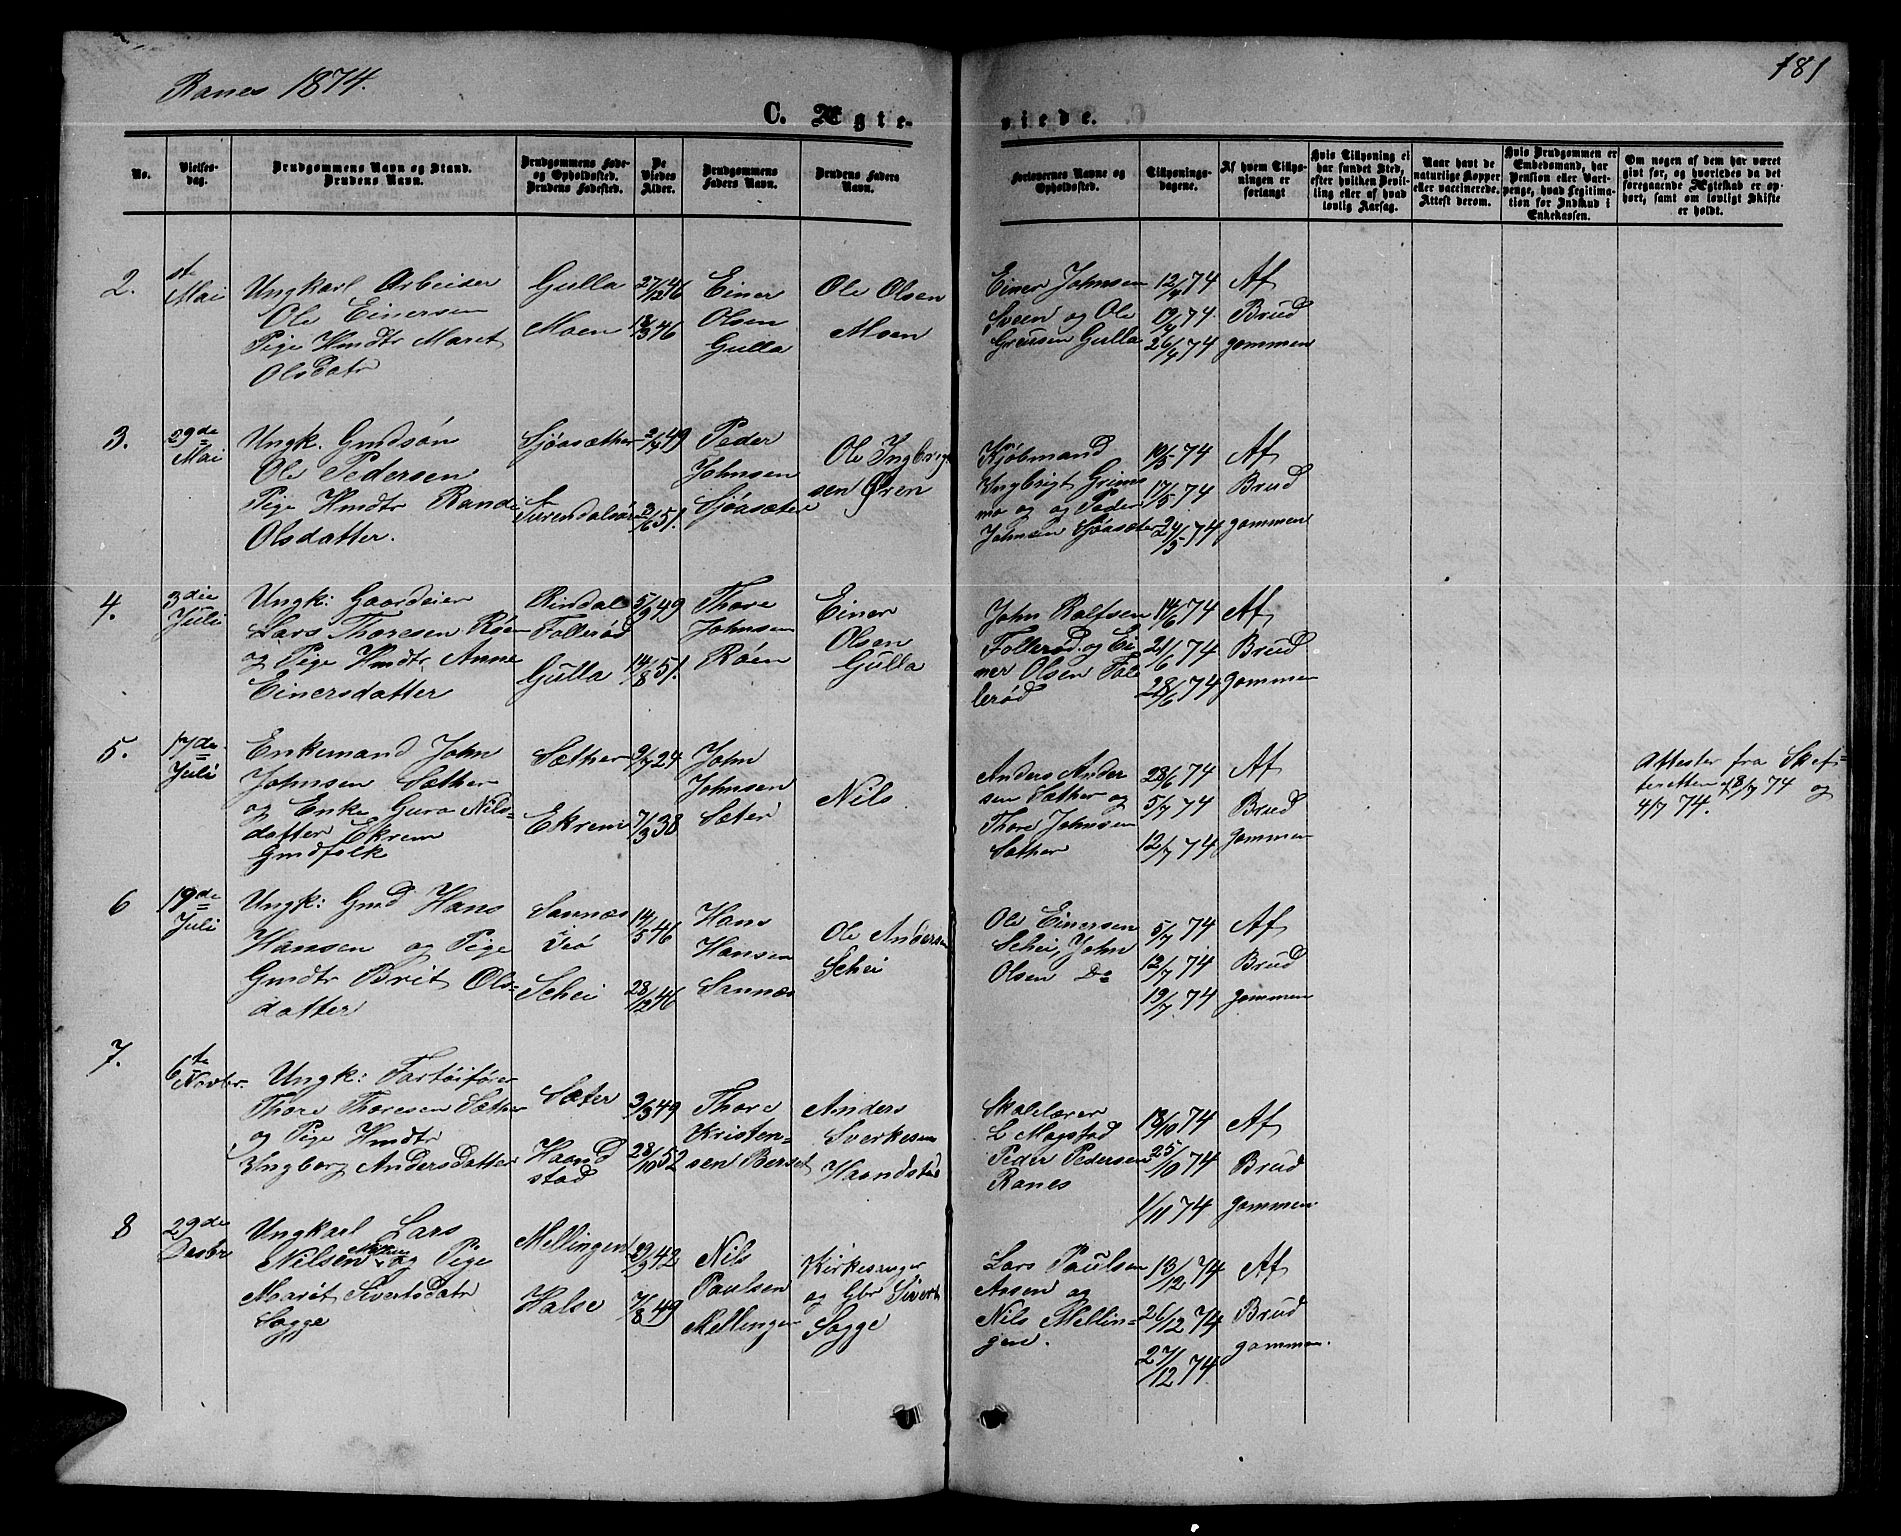 Ranes 1874.
181
C. Ægte-
viede.
No.
Vielses-
dag.
Brudgommens Navn og Stand.
Brudens Navn.
Brudgommens Føde-
og Opholdssted.
Brudens Fødested.
De
Viedes
Alder.
Brudgommens
Faders Navn.
Brudens Faders
Navn.
Forlovernes Navne og
Opholdssted.
Tillysnings-
dagene.
Af hvem Tillys-
ningen er
forlangt
Hvis Tillysning ei
har fundet Sted,
efter hvilken Bevil-
ling eller af hvad
lovlig Aarsag.
Naar havt de
naturlige Kopper
eller vaccinerede.
Attest derom.
Hvis Brudgommen er
Embedsmand, har
Pension eller Vart-
penge, hvad Legitima-
tion for Indskud i
Enkekassen.
Om nogen af dem har været
givt før, og hvorledes da det
foregaaende Ægteskab er op-
hørt, samt om lovligt Skifte
er holdt.
2.
1ste
Mai
Ungkarl Arbeider
Ole Einersen
Pige Hmdtr Maret
Olsdatr
Gulla
Moen
27/12 46
Einer
Olsen
Gulla
Ole Olsen
Moen
Einer Johnsen
Sveen og Ole
Gulla
12/4 74
19/4 74
26/4 74
Af
Brud
gommen
3.
29de
Mai
Ungk. Gmdsøn
Ole Pedersen
Pige Hmdtr Randi
Olsdatter.
Sjøasæther
Surendalsøre
Peder
Johnsen
Sjøasæter
Ole Ingbrigt
sen Øren
Kjøbmand
Ingbrigt Grims
mo og og Peder
Johnsen Sjøasæter
10/5 74
17/5 74
24/5 74
Af
Brud
gommen
4.
3die
Juli
Ungk: Gaardeier
Lars Thoresen Røen
og Pige Hmdtr Anne
Einersdatter
Rindal
Follerød
Gulla
5/9 49
14/8 51.
Thore
Johnsen
Røen
Einer
Olsen
Gulla
John Rolfsen
Follerød og Ei
ner Olsen Fol
lerød
14/6 74
21/6 74
28/6 74
Af
Brud
gommen
5.
17de
Juli
Enkemand John
Johnsen Sæther
og Enke Guro Nils-
datter Ekrem
Gmdfolk
Sæther
Ekrem
9/7 24
7/3 38
John
Johnsen
Sæter
Nils
Anders Ander
sen Sæther og
Thore Johnsen
Sæther
28/6 74
5/7 74
12/7 74
Af
Brud
gommen
Attester fra Skif-
teretten 74 og
4/7 74.
6
19de
Juli
Ungk: Gmd Hans
Hansen og Pige
Gmdtr Brit Ols-
datter
Sannes
Schei
14/5 46
28/12 46
Hans
Hansen
Sannes
Ole Andersen
Schei
Ole Einersen
Schei, John
Olsen Do
5/7 74
12/7 74
19/7 74
Af
Brud
gommen
7.
6te
Novbr.
Ungk: Fartøifører
Thore Thoresen Sæther
og Pige Hmdtr
Ingborg Andersdatter
Sæter
Haand
stad
3/3 49
28/10 52
Thore
Kristen-
sen Berset
Anders
Sverkesen
Haandstad
Skolelærer
L Mogstad
Peder Pedersen
Ranes
18/10 74
25/10 74
1/11 74
Af
Brud
gommen
8
29de
Decbr
Ungkarl Lars
Nilsen og Pige
Marit Sivertsdatr
Sogge
Mellingen
Halse
29/9 42
7/8 49
Nils
Paulsen
Mellingen
Kirkesanger
og Gbr Sivert
Sogge
Lars Paulsen
Aasen og
Nils Mellin-
gen.
13/12 74
26/12 74
27/12 74
Af
Brud
gommen.